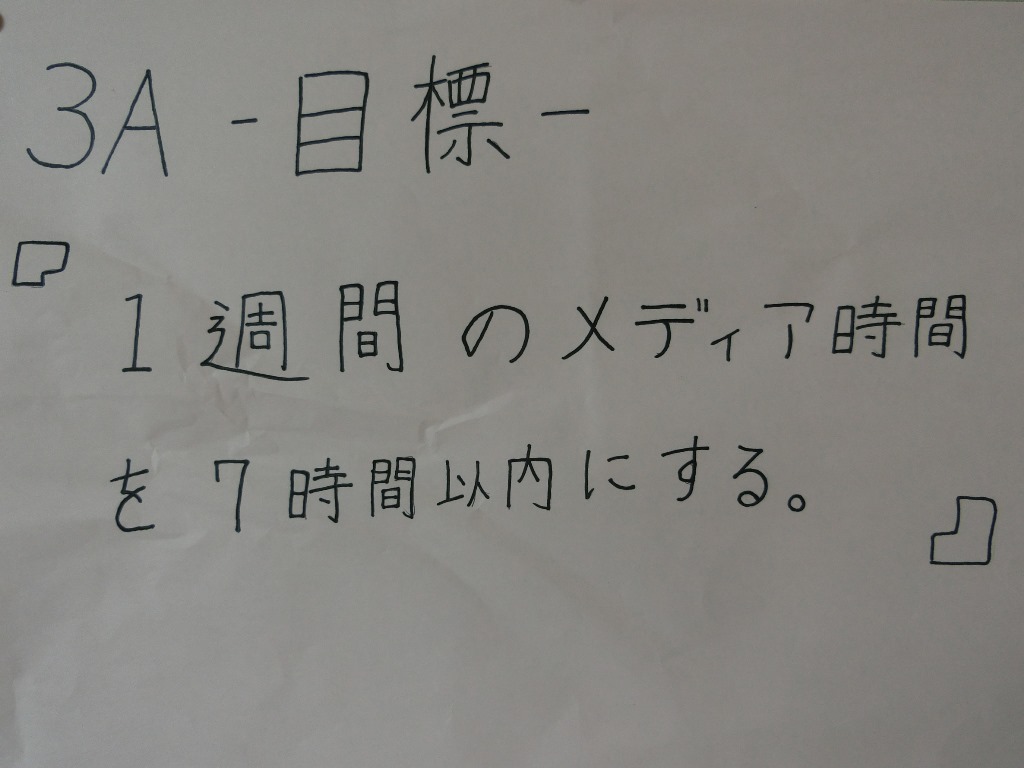 3A -目標-
『1週間のメディア時間
を7時間以内にする。』